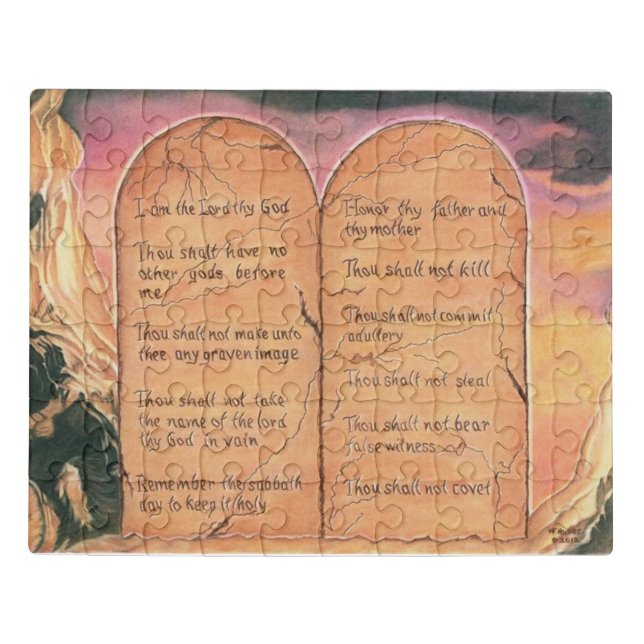 I am the Lord thy God
Thou shalt have no
other gods before
me
Thou shalt not make unto
thee any graven image
Thou shalt not take
the name of the lord
thy God in vain
Remember the sabbath
day to keep it holy
Honor thy father and
thy mother
Thou shall not kill
Thou shall not commit
adultery
Thou shalt not steal
Thou shalt not bear
false witness
Thou shalt not covet
© 2012